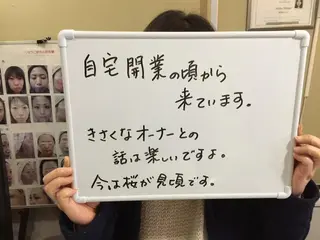 自宅開業の頃から
来ています。
きさくなオーナーとの
話は楽しいですよ。
今は桜が見頃です。